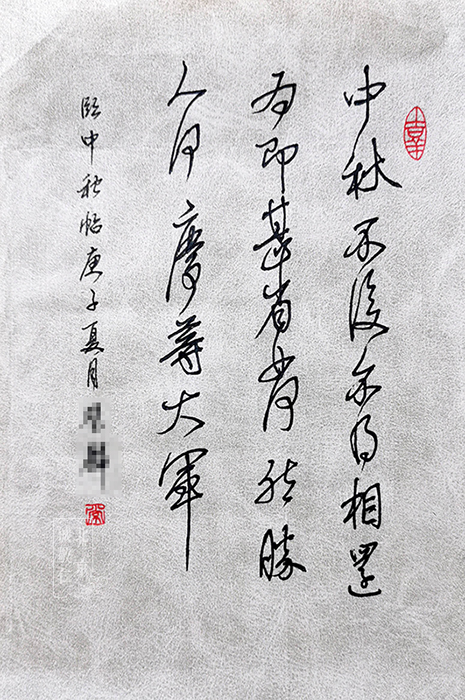 中秋不復不得相還
為即甚省如何然勝
人何慶等大軍
臨中秋帖庚子夏月